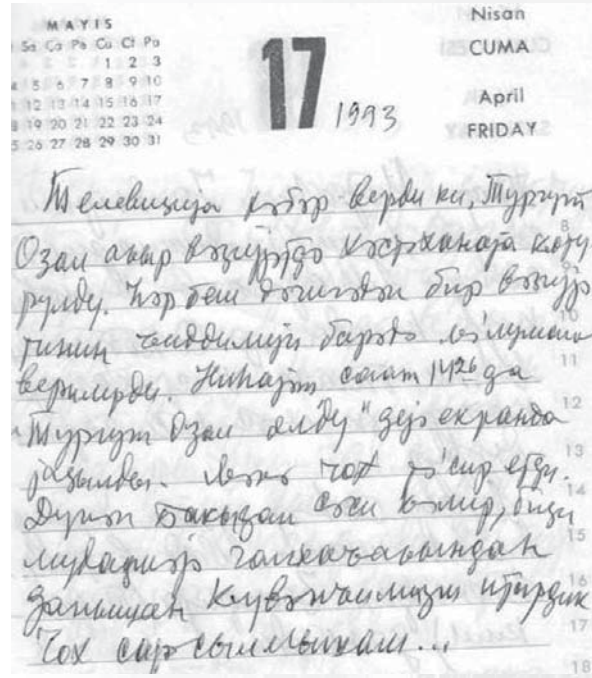 MAYIS
Sa Ca Pe Cu Ct Pa
1 2 3
4 5 6 7 8 9 10
12 13 14 15 16 17
19 20 21 22 23 24
26 27 28 29 30 31
17
1993
Nisan
CUMA
April
FRIDAY
Телевизија хәбәр верди ки, Тургут
Озал ағыр вәзијјәтдә хәстәханаја көтү
рүлдү. Һәр беш дәгигәдән бир вәзијјә
тинин ҹиддилији барәдә мә'лумат
верилирди. Ниһајәт саат 14 26 да
"Тургут Озал өлдү" дејә екранда
јазылды. Мәнә чох тә'сир етди.
Дүнән Бакыдан сәси кәлир, бизи
данышан итирдик
Чох сарсылмышам...
8
9
10
11
12
13
14
15
16
17
18